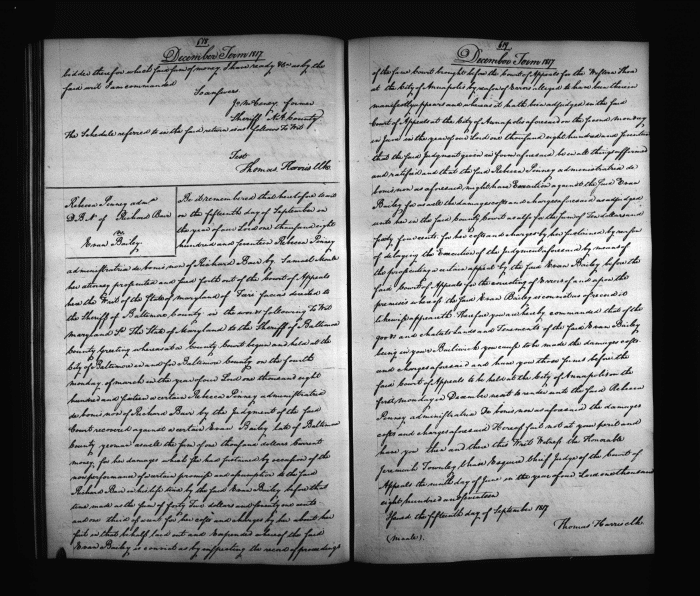 618
December Term 1817
bidder therefor which said sum of money I have ready &c as by the
said writ I am commanded
So answers
former
Sheriff A A County
The Schedule referred to in the said return is as follows To Wit
Test
Thomas Harris Clk.
Rebecca Penney admx
D.B.N. of Richard Burr
vs
Evan Bailey
Be it remembered that heretofore to wit
on the fifteenth day of September in
the year of our Lord one thousand eight
hundred and seventeen Rebecca Penney
administratrix de bonis non of Richard Burr by Samuel Moale
her attorney prosecuted and sued forth out of the Court of Appeals
here the Writ of the State of Maryland of Fieri facias directed to
the Sheriff of Baltimore County in the words following To Wit
Maryland Sc. The State of Maryland to the Sheriff of Baltimore
County Greeting whereas at a County Court begun and held at the
City of Baltimore in and for Baltimore County on the fourth
monday of march in the year of our Lord one thousand eight
hundred and fifteen a certain Rebecca Penney administratrix
de bonis non of Richard Burr by the Judgment of the said
Court recovered against a certain Evan Bailey late of Baltimore
County yeoman as well the sum of one thousand dollars Current
money for her damages which she had sustained by occasion of the
non performance of a certain promise and assumption to the said
Richard Burr in his life time by the said Evan Bailey before that
time made as the sum of forty Two dollars and seventy one cents
and one third of a cent for her costs and charges by her about her
suit in that behalf laid out and expended whereof the said
Evan Bailey is convict as by inspecting the record of proceedings
619
December Term 1817
of the same Court brought before the Court of Appeals for the Western Shore
at the City of Annapolis by reason of Errors alleged to have been therein
manifestly appears and whereas it hath been adjudged in the said
Court of Appeals at the City of Annapolis aforesaid on the second monday
in June in the year of our Lord one thousand eight hundred and seventeen
that the said Judgment given in form aforesaid be in all things affirmed
and ratified and that the said Rebecca Penney administratrix de
bonis non as aforesaid might have Execution against the said Evan
Bailey for as well the damages costs and charges aforesaid as adjudged
unto her in the said County Court as also for the sum of Ten dollars and
forty four cents for her costs and charges by her sustained by reason
of delaying the Execution of the Judgment aforesaid by means of
the prosecuting a certain appeal by the said Evan Bailey before the
said Court of Appeals for the correcting of Errors of and upon the
premises whereof the said Evan Bailey is convict as of record it
likewise appears Therefore you are hereby commanded that of the
goods and chattels lands and Tenements of the said Evan Bailey
being in your Bailiwick you cause to be made the damages costs
and charges aforesaid and have you those sums before the
said Court of Appeals to be held at the City of Annapolis on the
first monday in December next to render unto the said Rebecca
Penney administratrix De bonis non as aforesaid the damages
costs and charges aforesaid Hereof fail not at your peril and
have you then and there this Writ Witness the Honorable
Jeremiah Townley Chase Esquire Chief Judge of the Court of
Appeals the ninth day of June in the year of our Lord one thousand
eight hundred and seventeen
Issued the fifteenth day of September 1817
(Moale).
Thomas Harris Clk.